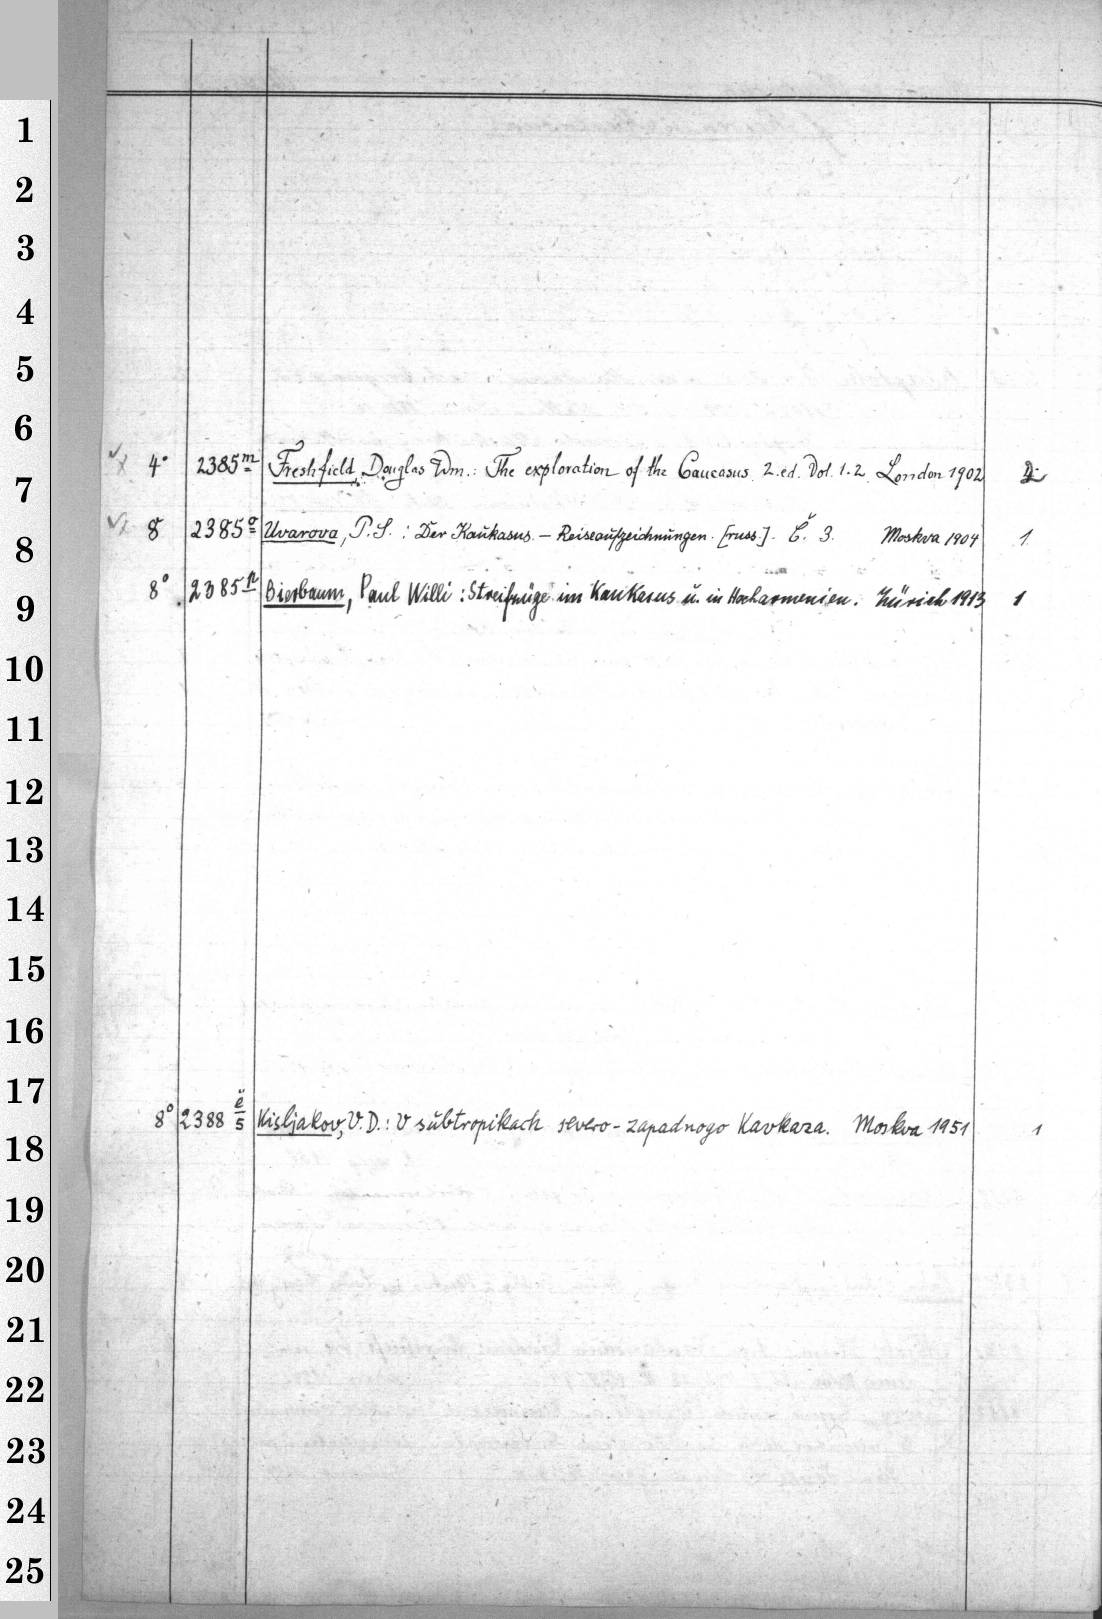 1
2
3
4
5
6
4° 2385m Freshfield, Douglas Wm.: The exploration of the Caucasus. 2. ed. Vol. 1. 2. London 1902 2
7
8° 2385o Uvarova, P. S.: Der Kaukasus. – Reiseaufzeichnungen. [russ.]. Č. 3. Moskva 1904 1
8
8° 2385p Bierbaum, Paul Willi: Streifzüge im Kaukasus u. in Hocharmenien. Zürich 1913 1
9
10
11
12
13
14
15
16
17
8° 2388 ë/5 Kisljakov, V. D.: V subtropikach severo-zapadnogo Kavkaza. Moskva 1951 1
18
19
20
21
22
23
24
25